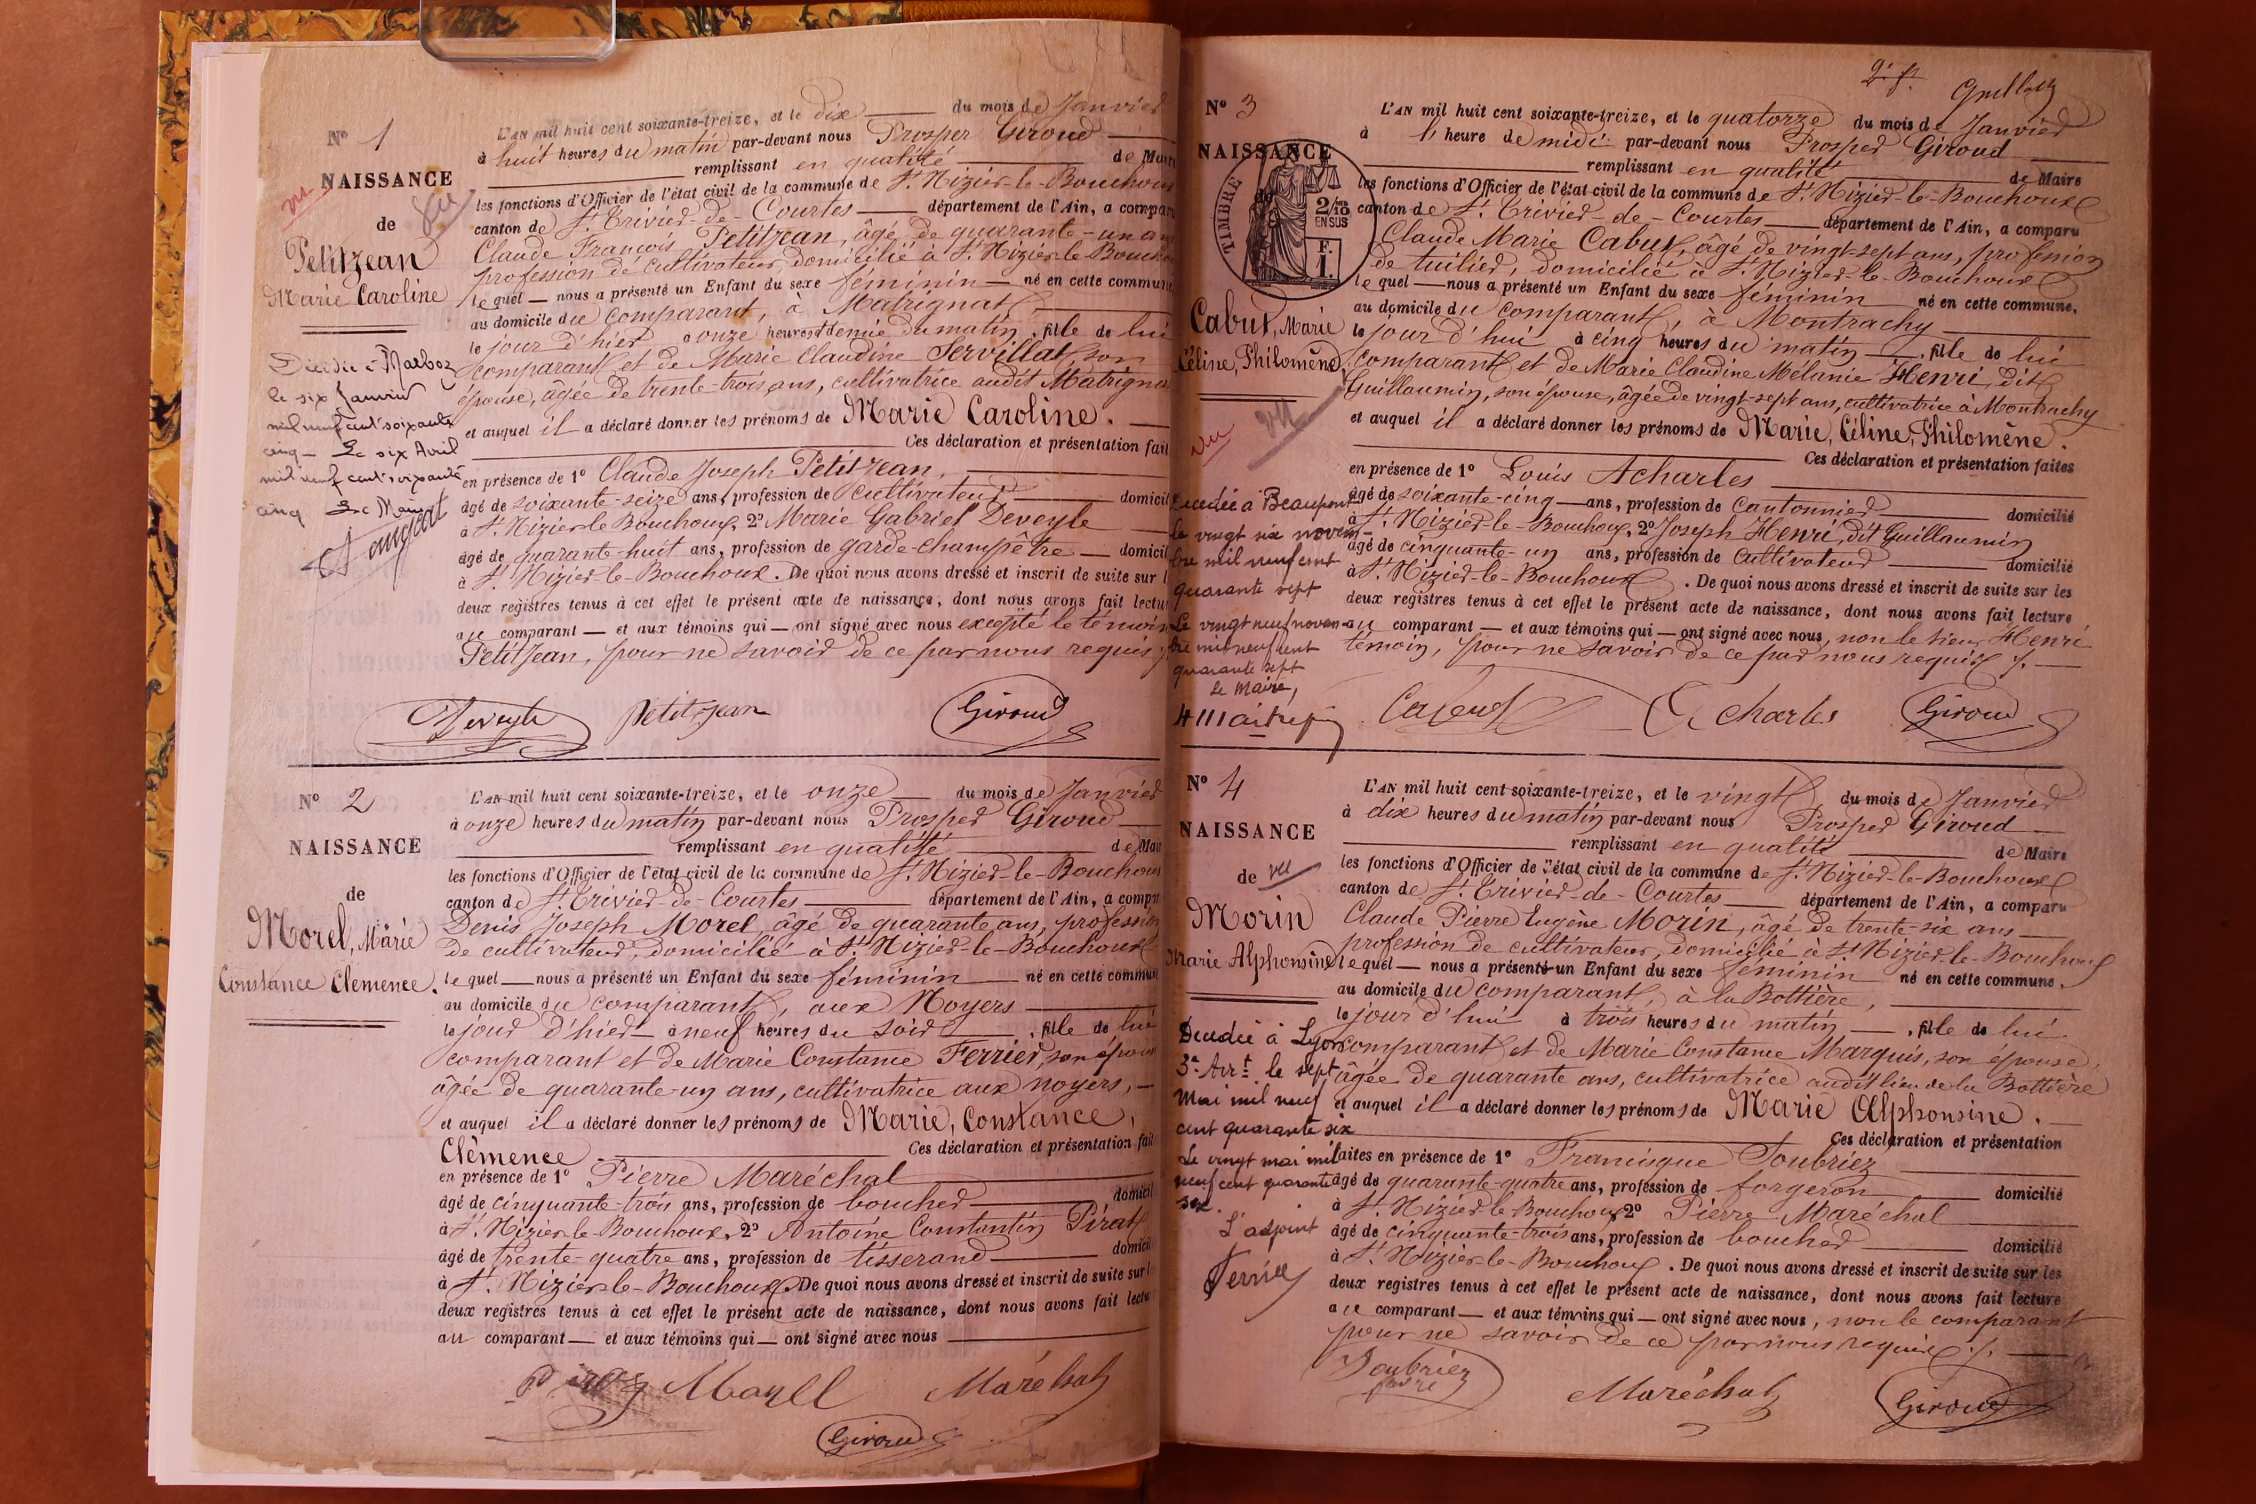 N° 1
NAISSANCE
de
Petitjean
Marie Caroline
Décédée à Marboz
le six Janvier
mil neuf cent soixante
cinq — Le six Avril
mil neuf cent soixante
cinq Le Maire
L'AN mil huit cent soixante-treize, et le dix du mois de Janvier
à huit heures du matin par-devant nous Prosper Giroud
remplissant en qualité de Maire
les fonctions d'Officier de l'état civil de la commune de St. Nizier-le-Bouchoux
canton de St. Trivier-de-Courtes département de l'Ain, a comparu
Claude François Petitjean, âgé de quarante-un ans
profession de cultivateur, domicilié à St. Nizier-le-Bouchoux
lequel — nous a présenté un Enfant du sexe féminin — né en cette commune
au domicile du comparant, à Matrignat
le jour d'hier à onze heures et demie du matin, fille de lui
comparant et de Marie Claudine Servillat, son
épouse, âgée de trente-trois ans, cultivatrice audit Matrignat
et auquel il a déclaré donner les prénoms de Marie Caroline.
Ces déclaration et présentation fait
en présence de 1° Claude Joseph Petitjean,
âgé de soixante-seize ans, profession de cultivateur domicil
à St. Nizier-le-Bouchoux, 2° Marie Gabriel Deveyle
âgé de quarante-huit ans, profession de garde-champêtre — domicil
à St. Nizier-le-Bouchoux. De quoi nous avons dressé et inscrit de suite sur l
deux registres tenus à cet effet le présent acte de naissance, dont nous avons fait lectur
au comparant — et aux témoins qui — ont signé avec nous excepté le témoin
Petitjean, pour ne savoir de ce par nous requis
Deveyle Petitjean Giroud
N° 2
NAISSANCE
de
Morel, Marie
Constance Clemence.
L'AN mil huit cent soixante-treize, et le onze du mois de Janvier
à onze heures du matin par-devant nous Prosper Giroud
remplissant en qualité de Mair
les fonctions d'Officier de l'état civil de la commune de St. Nizier-le-Bouchoux
canton de St. Trivier-de-Courtes département de l'Ain, a compar
Denis Joseph Morel, âgé de quarante ans, profession
de cultivateur, domicilié à St. Nizier-le-Bouchoux
lequel — nous a présenté un Enfant du sexe féminin — né en cette commun
au domicile du comparant, aux Noyers
le jour d'hier à neuf heures du soir, fille de lui
comparant et de Marie Constance Ferrier, son épouse
âgée de quarante-un ans, cultivatrice aux noyers, —
et auquel il a déclaré donner les prénoms de Marie, Constance,
Clèmence. Ces déclaration et présentation fait
en présence de 1° Pierre Maréchal
âgé de cinquante-trois ans, profession de boucher domicil
à St. Nizier-le-Bouchoux, 2° Antoine Constantin Pirat
âgé de trente-quatre ans, profession de tisserand domicil
à St. Nizier-le-Bouchoux. De quoi nous avons dressé et inscrit de suite sur l
deux registres tenus à cet effet le présent acte de naissance, dont nous avons fait lectu
au comparant — et aux témoins qui — ont signé avec nous
Morel Maréchal
Giroud
N° 3
NAISSANCE
de
TIMBRE
2/10
EN SUS
F.
1.
Cabut, Marie
Céline, Philomène.
Décédée à Beaupont
le vingt six novem-
bre mil neuf cent
quarante sept
Le vingt neuf novem-
bre mil neuf cent
quarante sept
Le Maire,
L'AN mil huit cent soixante-treize, et le quatorze du mois de Janvier
à 1 heure de midi par-devant nous Prosper Giroud
remplissant en qualité de Maire
les fonctions d'Officier de l'état civil de la commune de St. Nizier-le-Bouchoux
canton de St. Trivier-de-Courtes département de l'Ain, a comparu
Claude Marie Cabut, âgé de vingt-sept ans, profession
de tuilier, domicilié à St. Nizier-le-Bouchoux
lequel — nous a présenté un Enfant du sexe féminin né en cette commune,
au domicile du comparant, à Montrachy
le jour d'hui à cinq heures du matin, fille de lui
comparant et de Marie Claudine Mélanie Henri, dit
Guillaumin, son épouse, âgée de vingt-sept ans, cultivatrice à Montrachy
et auquel il a déclaré donner les prénoms de Marie, Céline, Philomène.
Ces déclaration et présentation faites
en présence de 1° Louis Acharles
âgé de soixante-cinq — ans, profession de Cantonnier domicilié
à St. Nizier-le-Bouchoux, 2° Joseph Henri, dit Guillaumin
âgé de cinquante-un ans, profession de Cultivateur domicilié
à St. Nizier-le-Bouchoux. De quoi nous avons dressé et inscrit de suite sur les
deux registres tenus à cet effet le présent acte de naissance, dont nous avons fait lecture
au comparant — et aux témoins qui — ont signé avec nous, non le sieur Henri
témoin, pour ne savoir de ce par nous requis
Acharles Giroud
N° 4
NAISSANCE
de
Morin
Marie Alphonsine
Decedée à Lyon
3e Arrt le sept
Mai mil neuf
cent quarante six
Le vingt mai mil
neuf cent quarante
six
L'adjoint
L'AN mil huit cent soixante-treize, et le vingt du mois de Janvier
à dix heures du matin par-devant nous Prosper Giroud
remplissant en qualité de Maire
les fonctions d'Officier de l'état civil de la commune de St. Nizier-le-Bouchoux
canton de St. Trivier-de-Courtes département de l'Ain, a comparu
Claude Pierre Eugène Morin, âgé de trente-six ans
profession de cultivateur, domicilié à St. Nizier-le-Bouchoux
lequel — nous a présenté un Enfant du sexe féminin né en cette commune,
au domicile du comparant, à la Bottière,
le jour d'hui à trois heures du matin, fille de lui
comparant et de Marie Constance Marquis, son épouse,
âgée de quarante ans, cultivatrice audit lieu de la Bottière
et auquel il a déclaré donner les prénoms de Marie Alphonsine.
Ces déclaration et présentation
faites en présence de 1° Francisque Soubriez
âgé de quarante-quatre ans, profession de forgeron domicilié
à St. Nizier-le-Bouchoux, 2° Pierre Maréchal
âgé de cinquante-trois ans, profession de boucher domicilié
à St. Nizier-le-Bouchoux. De quoi nous avons dressé et inscrit de suite sur les
deux registres tenus à cet effet le présent acte de naissance, dont nous avons fait lecture
au comparant — et aux témoins qui — ont signé avec nous, non le comparant
pour ne savoir de ce par nous requis
Soubriez Maréchal Giroud